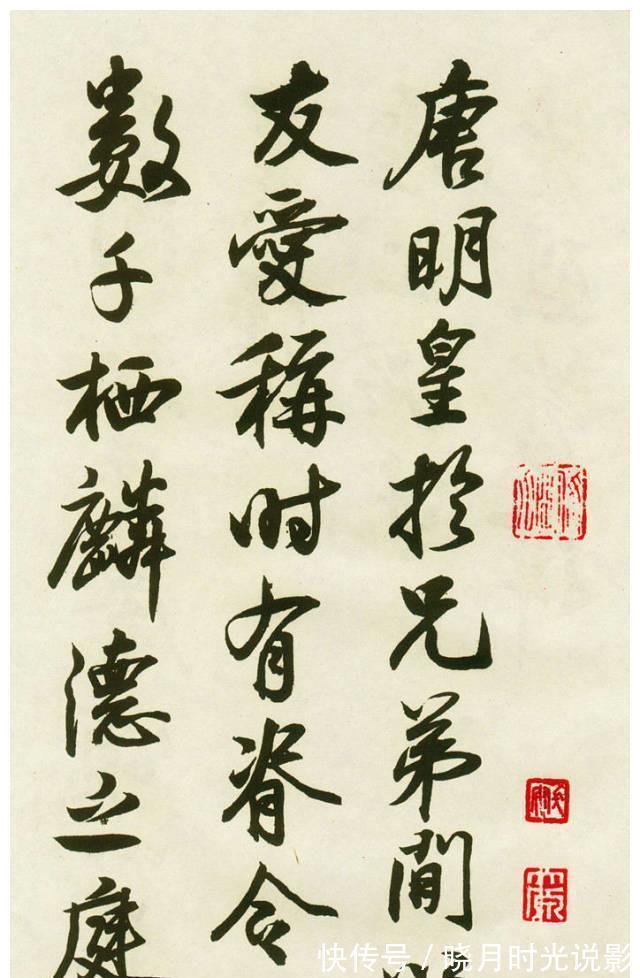 唐明皇於兄弟间
友爱稱时有脊令
数千栖麟德之庭
快传号/晓月时光说影